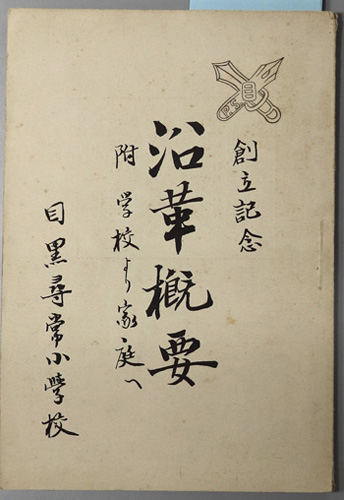 創立記念
沿革概要
附 学校より家庭へ
目黒尋常小學校
P.S.
目